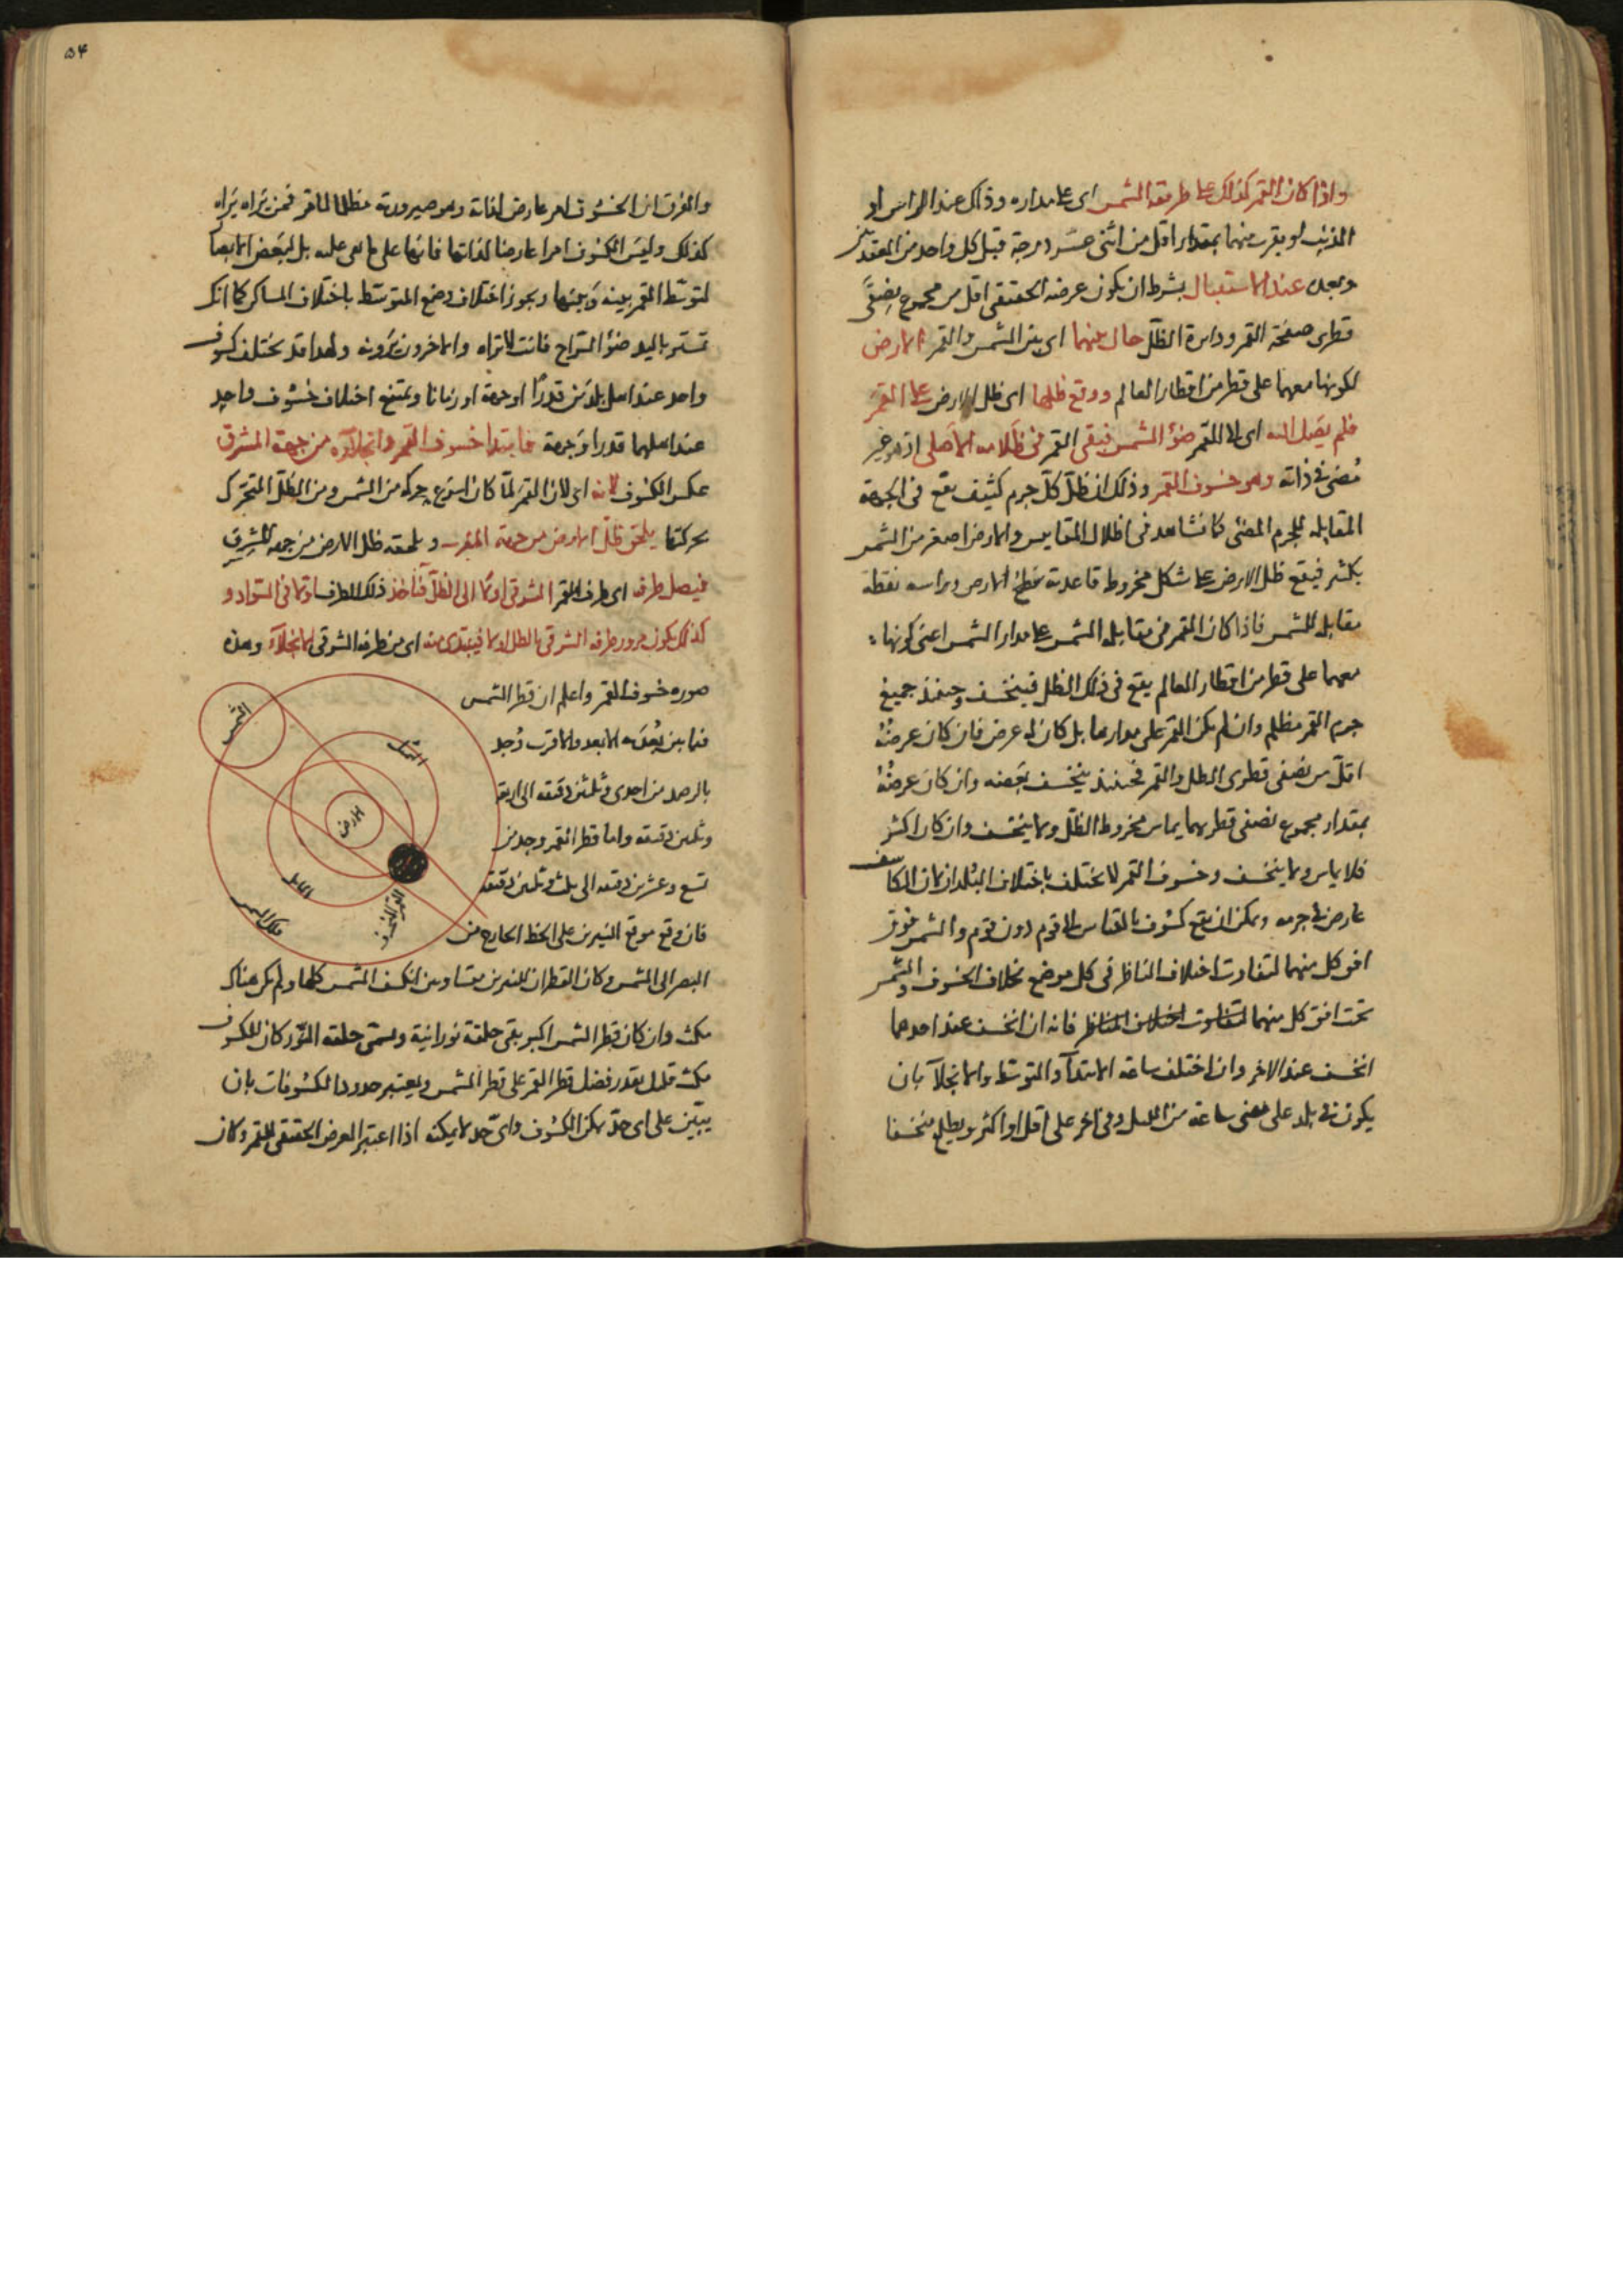 واذا كان القمر كذلك على طريقة الشمس اى على مداره وذلك عند الراس او
الذنب او بقرب منهما بمقدار اقل من اثنى عشر درجة قبل كل واحد من العقدتين
وبعده عند الاستقبال بشرط ان يكون عرضه الحقيقى اقل من مجموع نصفى
قطرى صفحة القمر ودائرة الظل حال بينهما اى بين الشمس والقمر الارض
لكونها معهما على قطر من اقطار العالم ووقع ظلها اى ظل الارض على القمر
فلم يصل اليه اى الى القمر ضؤ الشمس فيبقى القمر فى ظلامه الاصلى اذ هو غير
مضئ فى ذاته وهو خسوف القمر وذلك ان ظل كل جرم كثيف يقع فى الجهة
المقابلة للجرم المضئ كما نشاهد فى اظلال المقاييس والارض اصغر من الشمس
بكثير فيقع ظل الارض على شكل مخروط قاعدته سطح الارض وراسه نقطة
مقابلة للشمس فاذا كان القمر فى مقابلة الشمس على مدار الشمس اعنى كونها
معهما على قطر من اقطار العالم يقع فى ذلك الظل فينخسف وحينئذ جميع
جرم القمر مظلم وان لم يكن القمر على مدارها بل كان له عرض فان كان عرضه
اقل من نصفى قطرى الظل والقمر فحينئذ ينخسف بعضه وان كان عرضه
بمقدار مجموع نصفى قطريهما يماس مخروط الظل ولا ينخسف وان كان اكثر
فلا يماس ولا ينخسف وخسوف القمر لا يختلف باختلاف البلدان لان الكاسف
عارض فى جرمه ويمكن ان يقع كسوف بالقياس الى قوم دون قوم والشمس فوق
افق كل منهما لتفاوت اختلاف المناظر فى كل موضع بخلاف الخسوف والشمس
تحت افق كل منهما لتفاوت اختلاف المناظر فانه ان انخسف عند احدهما
انخسف عند الاخر وان اختلف ساعة الابتدآ والتوسط والانجلآ بان
يكون فى بلد على مضى ساعة من الليل وفى اخر على اقل او اكثر ويطلع منخسفا
۵۴
والفرق ان الخسوف امر عارض لذاته وهو صيرورته مظلما للقمر فمن يراه يراه
كذلك وليس الكسوف امرا عارضا لذاتها فانها على ما هى عليه بل لبعض الابصار
لتوسط القمر بينه وبينها ويجوز اختلاف وضع المتوسط باختلاف المساكن كما انك
تستر باليد ضؤ السراج فانت لا تراه والاخرون يرونه ولهذا قد يختلف كسوف
واحد عند اهل بلدين قدرًا او جهة او زمانا ويمتنع اختلاف خسوف واحد
عند اهلهما قدرا وجهة فابتدا خسوف القمر وانجلاؤه من جهة المشرق
عكس الكسوف لانه اى لان القمر لما كان اسرع حركة من الشمس ومن الظل المتحرك
بحركتها يلحق ظل الارض من جهة المغرب ويلحقه ظل الارض من جهة المشرق
فيصل طرفه اى طرف القمر الشرقى اولا الى الظل فتاخذ ذلك الطرف اولا فى السواد و
كذلك يكون مرور طرفه الشرقى بالظل اولا فيبتدى منه اى من طرفه الشرقى الانجلآء وهذه
صورة خسوف القمر واعلم ان قطر الشمس
فيما بين بعديه الابعد والاقرب وجد
بالرصد من احدى وثلثين دقيقة الى اربعة
وثلثين دقيقة واما قطر القمر وجد من
تسع وعشرين دقيقة الى ثلث وثلثين دقيقة
فان وقع موقع النيرين على الخط الخارج من
البصر الى الشمس وكان القطران للنيرين متساويين انكسف الشمس كلها ولم يكن هناك
مكث وان كان قطر الشمس اكبر يبقى حلقة نورانية ويسمى حلقة النور كان للكسوف
مكث قليل بقدر فضل قطر القمر على قطر الشمس ويعتبر حدود الكسوفات بان
يتبين على اى حد يمكن الكسوف واى حد لا يمكنه اذا اعتبر العرض الحقيقى للقمر وكان
الشمس
المايل
الارض